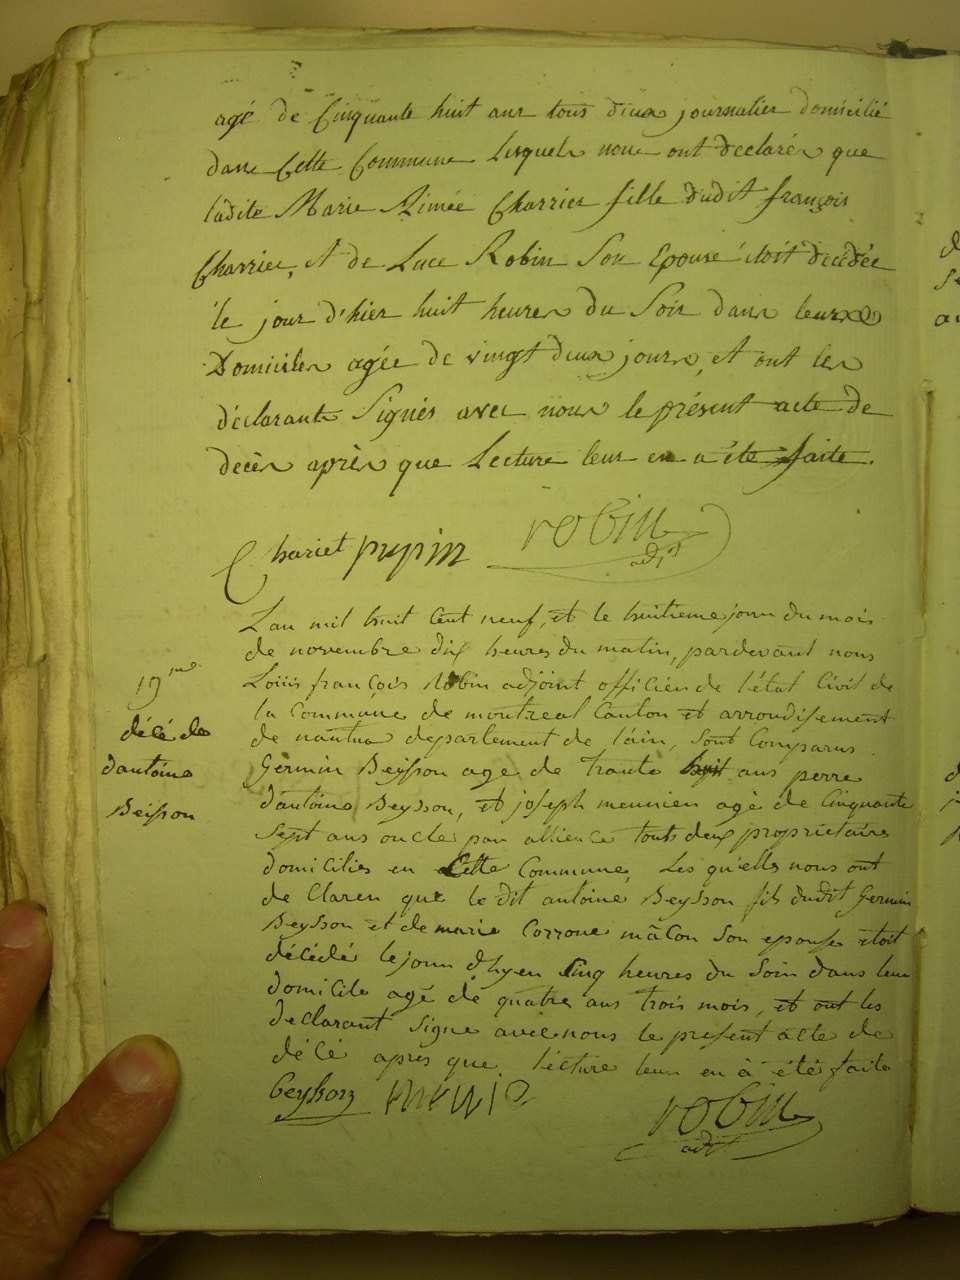 agé de Cinquante huit ans tous deux journalier domicilié
dans Cette Commune Lesquels nous ont declarés que
ladite Marie Aimée Charrier fille dudit françois
Charrier, et de Luce Robin Son Epouse étoit décédée
le jour d'hier huit heures du Soir dans leurs
Domiciles agée de vingt deux jours, et ont les
déclarants Signés avec nous le présent acte de
decès après que Lecture leur en a été faite.
Chariet pupin robin
adjt
L'an mil huit Cent neuf, et le huitieme jour du mois
de novembre dix heures du matin, pardevant nous
Louis françois Robin adjoint officier de l'état Civil de
la Commune de montreal Canton et arrondissement
de nantua departement de l'ain, sont Comparus
19me
décé de
d'antoine
Beisson
Germin Beysson age de trante huit ans perre
d'antoine Beysson, et joseph meunier agé de Cinquante
Sept ans oncle par allience touts deux proprietaire
domiciliés en Cette Commune, Les quells nous ont
de Claren que le dit antoine Beysson fils dudit Germin
Beysson et de marie Corrone mâcon Son epouse etoit
décédé le jour d'hyer Cinq heures du Soir dans leur
domicile agé de quatre ans trois mois, et ont les
declarant Signe avec nous le present acte de
décé apres que lécture leur en à été faite
beysson meunie robin
adjt